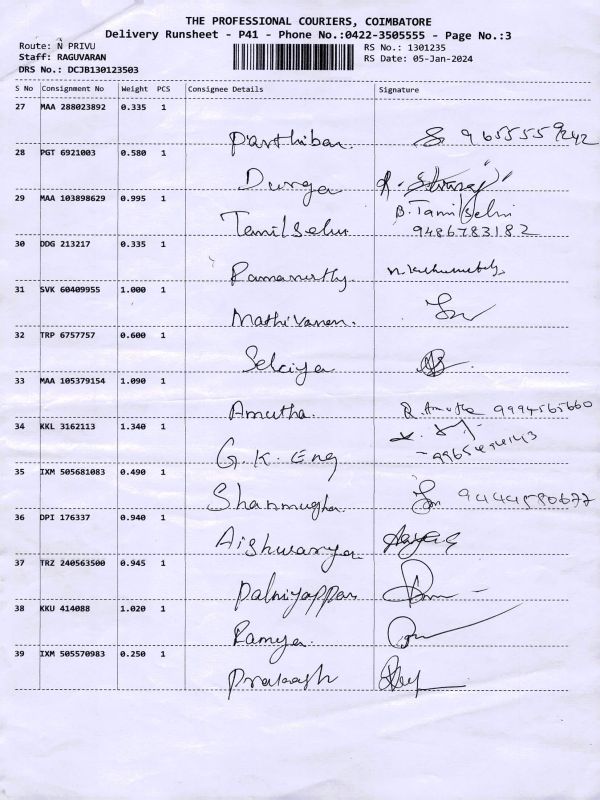 THE PROFESSIONAL COURIERS, COIMBATORE
Delivery Runsheet - P41 - Phone No.:0422-3505555 - Page No.:3
Route: N PRIVU
RS No.: 1301235
Staff: RAGUVARAN
RS Date: 05-Jan-2024
DRS No.: DCJB130123503
S No Consignment No Weight PCS Consignee Details Signature
27 MAA 288023892 0.335 1
Parthiban. 9655559242
28 PGT 6921003 0.580 1
Durga
29 MAA 103898629 0.995 1
B. Tamil Selvi
Tamilselvi 9486783182
30 DDG 213217 0.335 1
Ramamurthy
31 SVK 60409955 1.000 1
Mathivanan.
32 TRP 6757757 0.600 1
33 MAA 105379154 1.090 1
Amutha. R. Amutha 9994565660
34 KKL 3162113 1.340 1
G.K. Eng
35 IXM 505681083 0.490 1
Shanmugha 9444580677
36 DPI 176337 0.940 1
Aishwarya
37 TRZ 240563500 0.945 1
Palniyappan
38 KKU 414088 1.020 1
Ramya.
39 IXM 505570983 0.250 1
Prakash